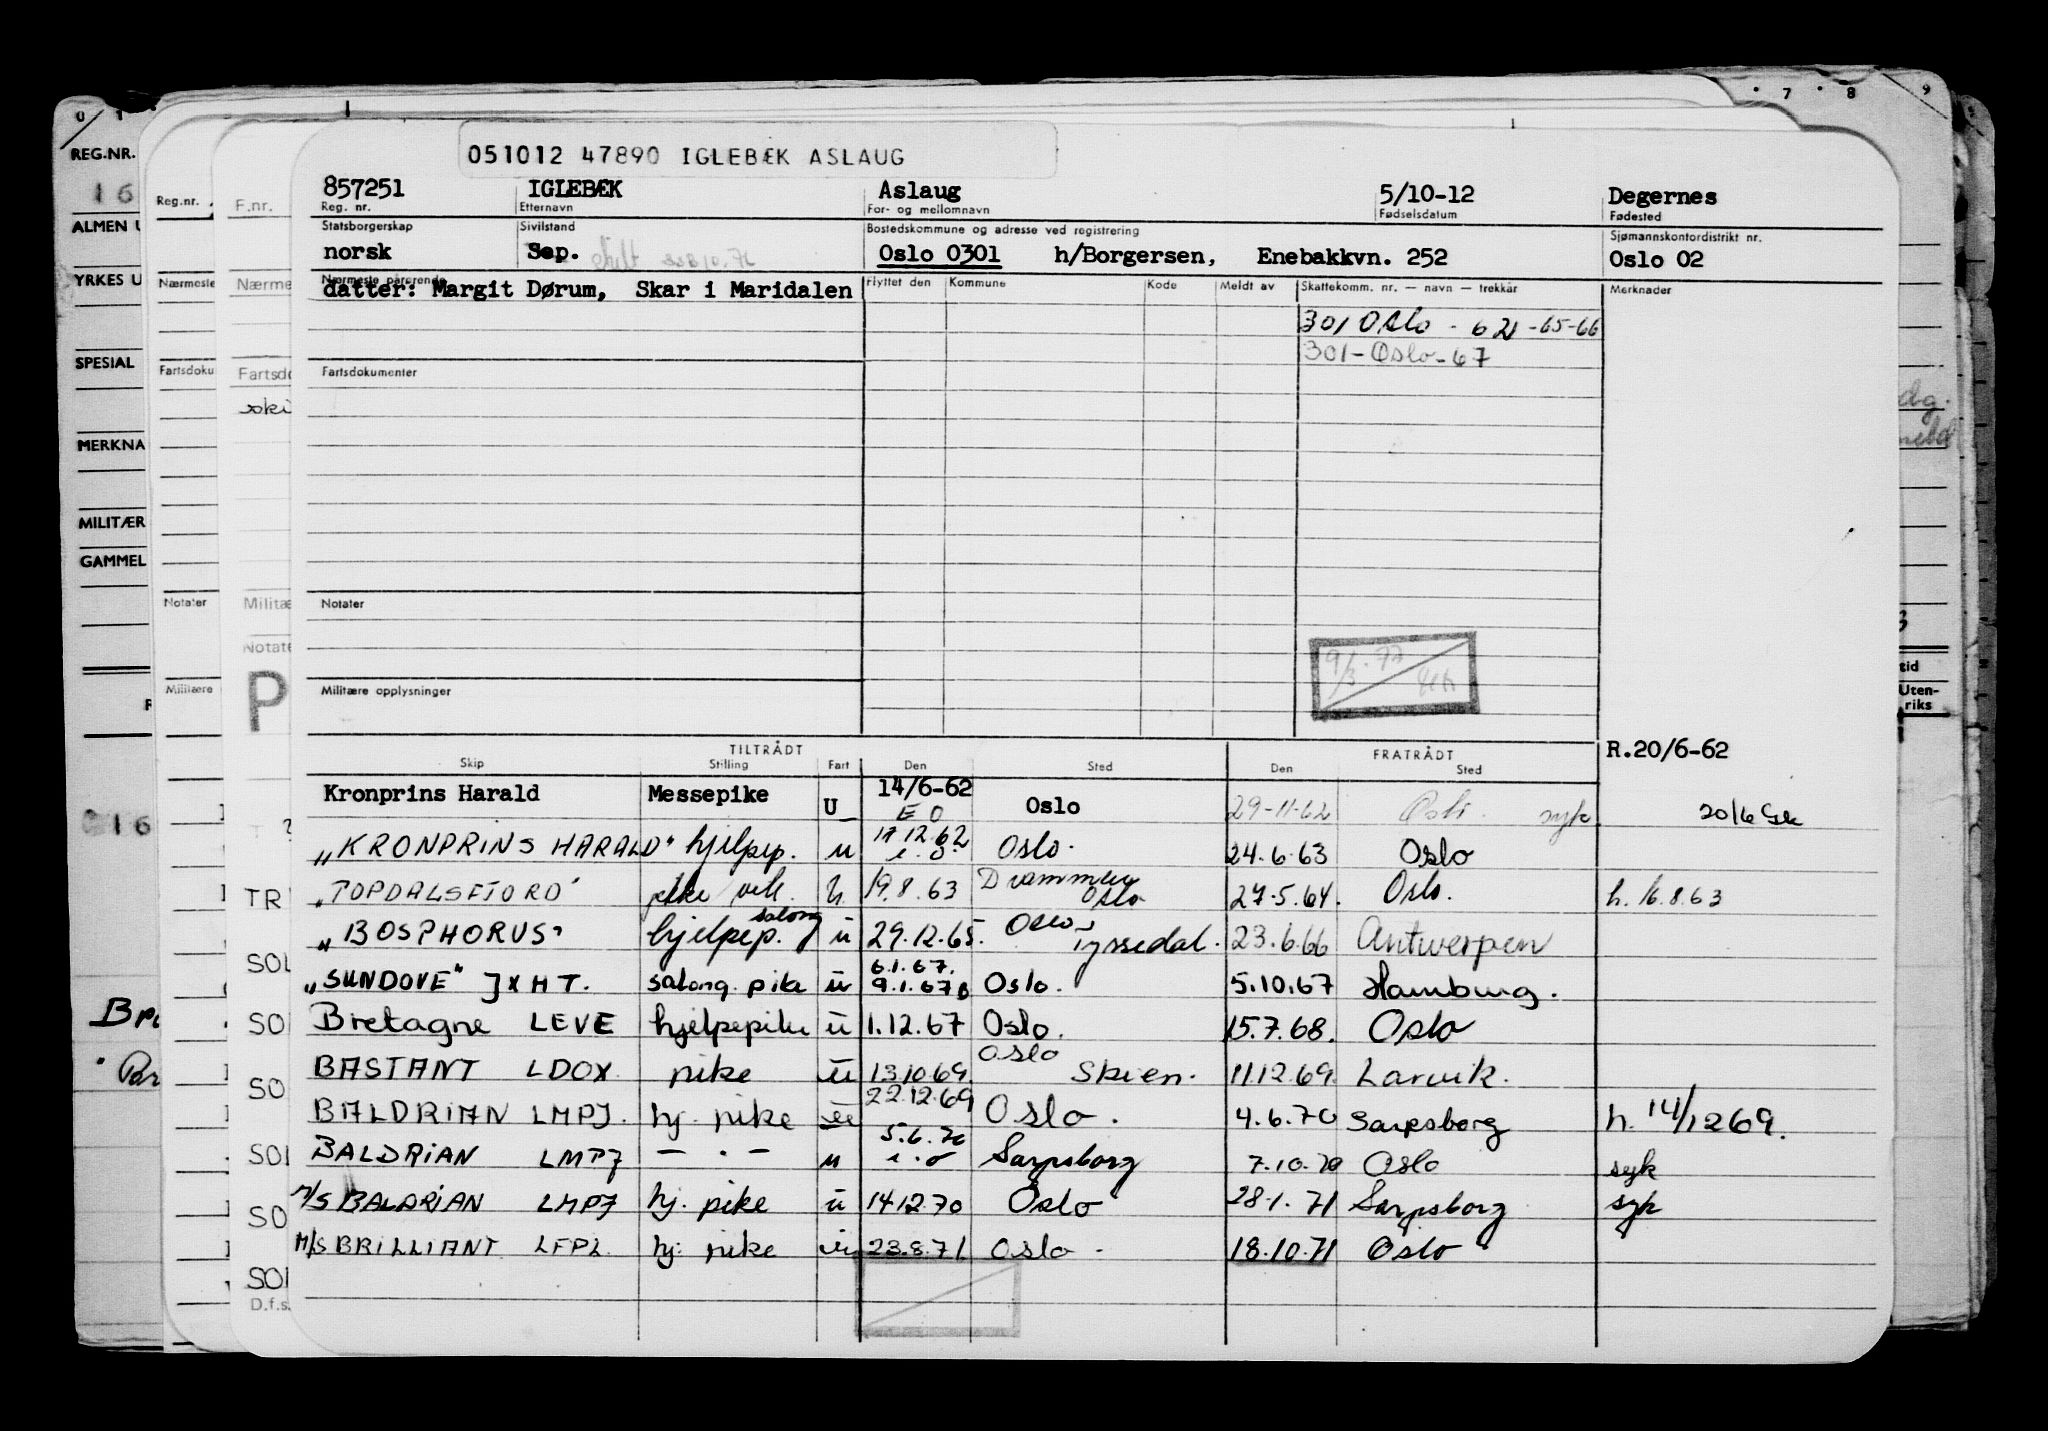 0 1 7 8 9
051012 47890 IGLEBÆK ASLAUG
REG.NR. Reg.nr. F.nr. 857251 IGLEBÆK Aslaug 5/10-12 Degernes
16 Reg. nr. Etternavn For- og mellomnavn Fødselsdatum Fødested
ALMEN U Statsborgerskap Sivilstand Bostedskommune og adresse ved registrering Sjømannskontordistrikt nr.
norsk Sep. Oslo 0301 h/Borgersen, Enebakkvn. 252 Oslo 02
YRKES U Nærmeste Nærme Nærmeste pårørende Flyttet den Kommune Kode Meldt av Skattekomm. nr. — navn — trekkår Merknader
datter: Margit Dørum, Skar i Maridalen
301 Oslo - 62 -65-66
301-Oslo-67
SPESIAL Fartsdoku Fartsdo Fartsdokumenter
ski
MERKNA
MILITÆR
GAMMEL
Notater Militæ Notater
Notate
9/3.72
Militære P Militære opplysninger
tid
Uten-
riks
TILTRÅDT FRATRÅDT R.20/6-62
Skip Stilling Fart Den Sted Den Sted
Kronprins Harald Messepike U 14/6-62 Oslo 29-11-62 Oslo syk 20/6
E O
16
"KRONPRINS HARALD" hjelpep. u 17.12.62 Oslo. 24.6.63 Oslo
i.o.
TR "TOPDALSFJORD" u. 19.8.63 Drammen Oslo 27.5.64. Oslo. h. 16.8.63
"BOSPHORUS" hjelpep. salong u 29.12.65. Oslo, Tyssedal. 23.6.66 Antwerpen
SOL
6.1.67.
"SUNDOVE" JXHT. salong. pike u 9.1.67 Oslo. 5.10.67 Hamburg.
SO Bretagne LEVE hjelpepike u 1.12.67 Oslo. 15.7.68. Oslo
BASTANT LDOX pike u 13.10.69. Oslo Skien. 11.12.69. Larvik.
SO
BALDRIAN LMPJ. hj. pike u 22.12.69 Oslo. 4.6.70 Sarpsborg h. 14/1269.
SO BALDRIAN LMPJ — · — u 5.6.70 Sarpsborg 7.10.70 Oslo syk
i.o
SO M/S BALDRIAN LMPJ hj. pike u 14.12.70 Oslo 28.1.71 Sarpsborg syk
M/S BRILLIANT LFPL. hj. pike u 23.8.71 Oslo. 18.10.71 Oslo
SO
D.f.s.